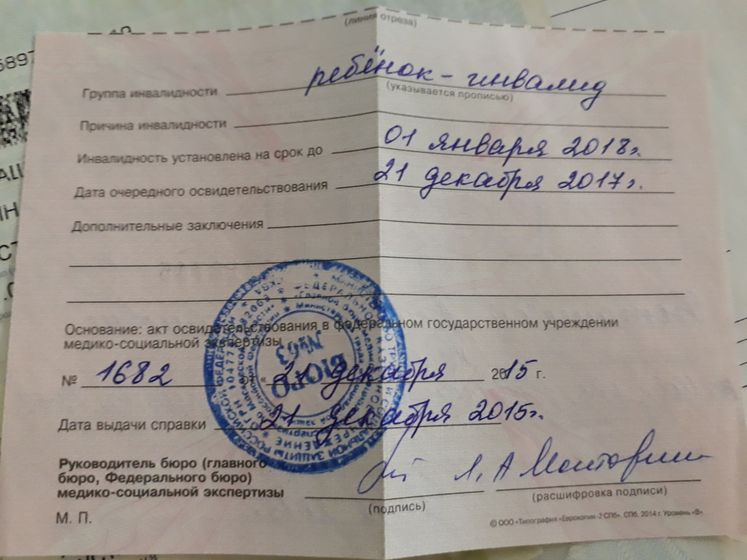 (линия отреза)
Группа инвалидности ребёнок-инвалид
(указывается прописью)
Причина инвалидности
Инвалидность установлена на срок до 01 января 2018г.
Дата очередного освидетельствования 21 декабря 2017г.
Дополнительные заключения
Основание: акт освидетельствования в федеральном государственном учреждении
медико-социальной экспертизы
№ 1682 от «21 декабря 2015 г.
Дата выдачи справки 21 декабря 2015г.
Руководитель бюро (главного
бюро, Федерального бюро)
медико-социальной экспертизы
(подпись)
(расшифровка подписи)
М. П.
© ООО «Типография «Еврокопи-2 СПб». СПб. 2014 г. Уровень «В»
БЮРО
№63